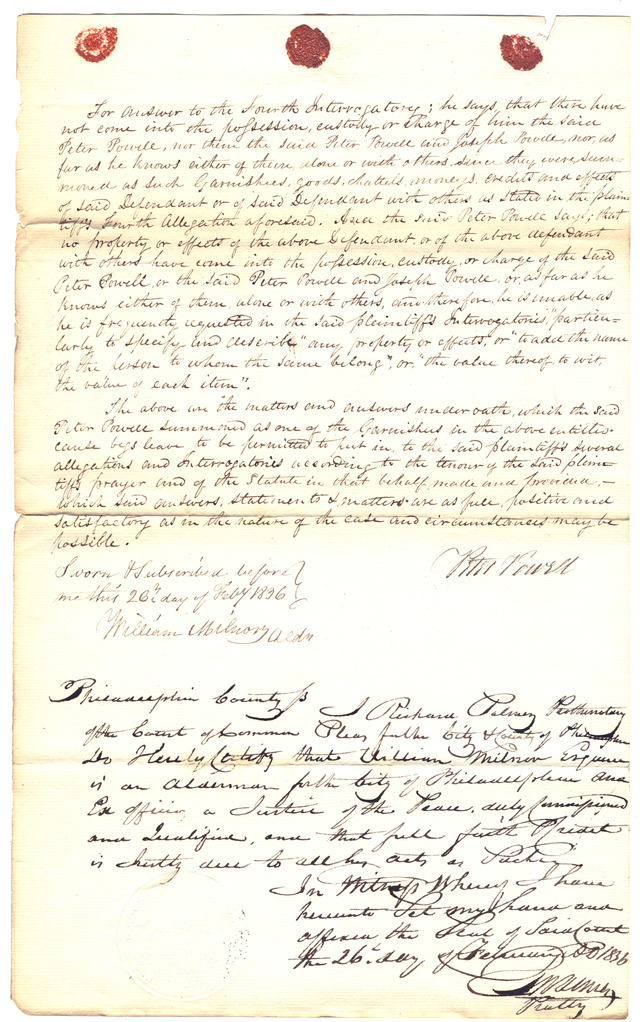 For answer to the Fourth Interrogatory; he says, that there have
not come into the possession, custody or charge of him the said
Peter Powell, nor them the said Peter Powell and Joseph Powell, nor, as
far as he knows either of them alone or with others, since they were sum-
moned as such Garnishees, goods, chattels, moneys, credits and effects
of said Defendant or of said Defendant with others as stated in the plain-
tiff's Fourth Allegation aforesaid. And the said Peter Powell says, that
no property or effects of the above Defendant, or of the above defendant
with others have come into the possession, custody, or charge of the said
Peter Powell, or the said Peter Powell and Joseph Powell, or, as far as he
knows either of them, alone or with others, and therefore, he is unable, as
he is frequently requested in the said plaintiff's Interrogatories, "particu-
larly to specify and describe" any property or effects, or "to add the name
of the person to whom the same belong", or, "the value thereof to wit,
the value of each item".
The above are the matters and answers under oath, which the said
Peter Powell summoned as one of the Garnishees in the above entitled
cause begs leave to be permitted to put in, to the said plaintiff's several
allegations and Interrogatories according to the tenour of the said plain-
tiff's prayer and of the Statute in that behalf, made and provided,—
which said answers, statements & matters are as full, positive and
satisfactory as in the nature of the case and circumstances may be
possible.
Sworn & Subscribed before
me this 26th day of Feby 1836
Peter Powell
William Milnor Aldn
Philadelphia County ss
I Richard Palmer Prothonotary
of the Court of Common Pleas for the City & County of Philadelphia
Do Hereby Certify that William Milnor Esquire
is an Alderman for the City of Philadelphia and
Ex officio a Justice of the Peace, duly Commissioned
and Qualified, and that full faith & Credit
is justly due to all his acts as Such
In Witness Whereof I have
hereunto Set my hand and
affixed the Seal of Said Court
the 26th day of February AD 1836
R Palmer
Prothy